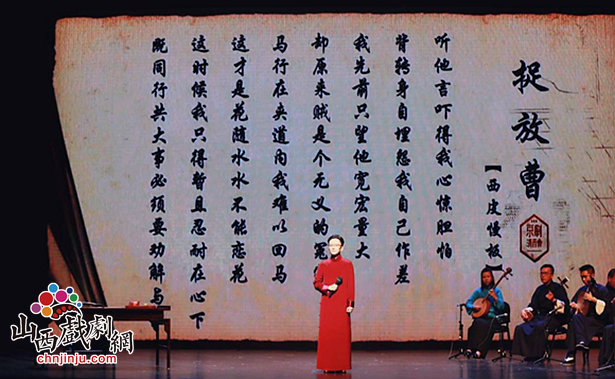 捉放曹
【西皮慢板】
京剧
听他言吓得我心惊胆怕
背转身自埋怨我自己作差
我先前只望他宽宏量大
却原来贼是个无义的冤
马行在夹道内我难以回马
这才是花随水水不能恋花
这时候我只得暂且忍耐在心下
既同行共大事必须要劝解与
山西戲劇網
chnjinju.com